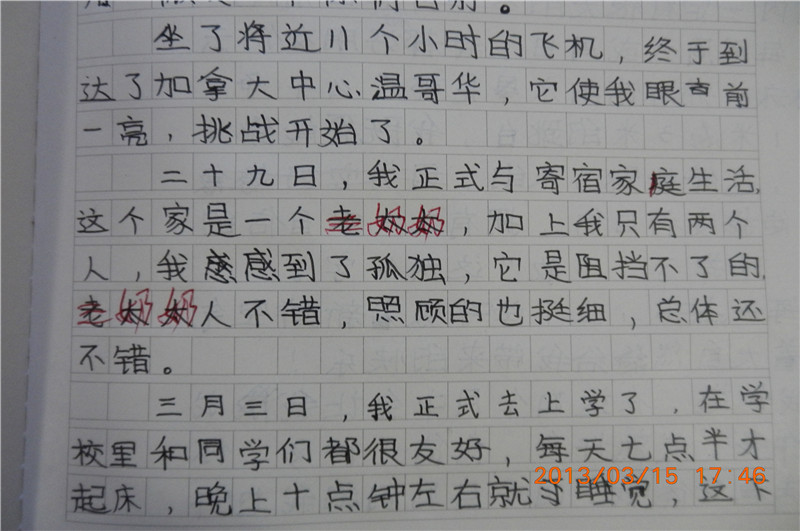 坐了将近11个小时的飞机，终于到
达了加拿大中心温哥华，它使我眼前
一亮，挑战开始了。
二十九日，我正式与寄宿家庭生活，
这个家是一个奶奶，加上我只有两个
人，我感到了孤独，它是阻挡不了的，
奶奶人不错，照顾的也挺细，总体还
不错。
三月三日，我正式去上学了，在学
校里和同学们都很友好，每天七点半才
起床，晚上十点钟左右就睡觉，这
2013/03/15 17:46